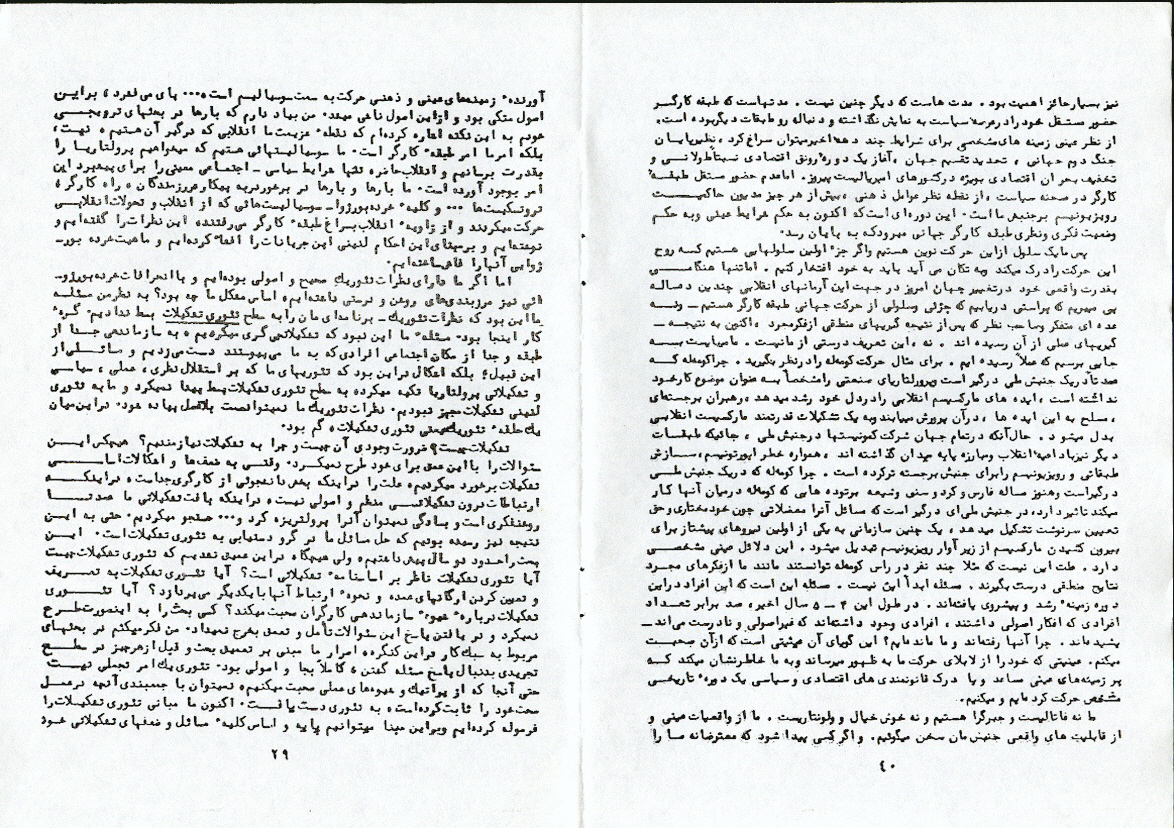 نیز بسیار حائز اهمیت بود . مدت هاست که دیگر چنین نیست . مدتهاست که طبقه کارگر
حضور مستقل خود را در عرصه سیاست به نمایش نگذاشته و دنباله رو طبقات دیگر بوده است.
از نظر عینی زمینه های مشخصی برای شرایط چند دهه اخیر میتوان سراغ کرد ، نظیر پایان
جنگ دوم جهانی ، تجدید تقسیم جهان ، آغاز یک دوره رونق اقتصادی نسبتاً طولانی و
تخفیف بحران اقتصادی بویژه در کشورهای امپریالیست پیروز . اما عدم حضور مستقل طبقه
کارگر در صحنه سیاست ، از نقطه نظر عوامل ذهنی ، بیش از هر چیز مدیون حاکمیت
رویزیونیسم بر جنبش ما است . این دوره ای است که اکنون به حکم شرایط عینی و به حکم
وضعیت فکری و نظری طبقه کارگر جهانی میرود که به پایان رسد .
پس ما یک سلول از این حرکت نوین هستیم و اگر جزء اولین سلولهایی هستیم که روح
این حرکت را درک میکند و به تکان می آید باید به خود افتخار کنیم . اما تنها هنگامی
بقدرت واقعی خود در تغییر جهان امروز در جهت این آرمانهای انقلابی چندین دهساله
پی میبریم که براستی دریابیم که جزئی و سلولی از حرکت جهانی طبقه کارگر هستیم ـ و نه
عده ای متفکر و صاحب نظر که پس از نتیجه گیریهای منطقی از فکر مجرد ، اکنون به نتیجه ـ
گیریهای عملی از آن رسیده اند . نه ، این تعریف درستی از ما نیست . ما میبایست به
جایی برسیم که عملاً رسیده ایم . برای مثال حرکت کومه‌له را در نظر بگیرید . چرا کومه‌له که
عمدتاً در یک جنبش ملی درگیر است و پرولتاریای صنعتی را مشخصاً به عنوان موضوع کار خود
نداشته است ، ایده های مارکسیسم انقلابی را در دل خود رشد میدهد ، رهبران برجسته‌ای
، مسلح به این ایده ها ، در آن پرورش مییابند و به یک تشکیلات قدرتمند مارکسیست انقلابی
بدل میشود . حال آنکه در تمام جهان شرکت کمونیستها در جنبش ملی ، جائیکه طبقات
دیگر نیز با داعیه انقلاب و مبارزه پا به میدان گذاشته اند ، همواره خطر اپورتونیسم ، سازش
طبقاتی و رویزیونیسم را برای جنبش برجسته تر کرده است . چرا کومه‌له که در یک جنبش ملی
درگیر است و هنوز مساله فارس و کرد و سنی و شیعه بر توده هایی که کومه‌له در میان آنها کار
میکند تاثیر دارد ، در جنبش ملی ای درگیر است که مسائل آنرا معضلاتی چون خودمختاری و حق
تعیین سرنوشت تشکیل میدهد ، یک چنین سازمانی به یکی از اولین نیروهای پیشتاز برای
بیرون کشیدن مارکسیسم از زیر آوار رویزیونیسم تبدیل میشود . این دلائل عینی مشخصی
دارد . علت این نیست که مثلا چند نفر در راس کومه‌له توانستند مانند ما از فکرهای مجرد
نتایج منطقی درست بگیرند . مسئله ابداً این نیست . مسئله این است که این افراد در این
دوره زمینه رشد و پیشروی یافته‌اند . در طول این ۴ ـ ۵ سال اخیر ، صد برابر تعداد
افرادی که افکار اصولی داشتند ، افرادی وجود داشته‌اند که غیراصولی و نادرست می‌اند ـ
یشیده‌اند . چرا آنها رفته‌اند و ما مانده‌ایم ؟ این گویای آن عینیتی است که از آن صحبت
میکنم . عینیتی که خود را از لابلای حرکت ما به ظهور میرساند و به ما خاطرنشان میکند که
بر زمینه‌های عینی مساعد و با درک قانونمندی های اقتصادی و سیاسی یک دوره تاریخی
مشخص حرکت کرده‌ایم و میکنیم .
ما نه فاتالیست و جبرگرا هستیم و نه خوش خیال و ولونتاریست . ما از واقعیات عینی و
از قابلیت های واقعی جنبش‌مان سخن میگوئیم . و اگر کسی پیدا شود که معترضانه ما را
٤٠
آورنده زمینه‌های عینی و ذهنی حرکت به سمت سوسیالیسم است ... پای می‌فشرد ، بر این
اصول متکی بود و از این اصول ناشی میشد . من بیاد دارم که بارها در بحثهای ترویجی
خودم به این نکته اشاره کرده‌ام که نقطه عزیمت ما انقلابی که درگیر آن هستیم نیست ،
بلکه امر ما امر طبقه کارگر است . ما سوسیالیستهائی هستیم که میخواهیم پرولتاریا را
بقدرت برسانیم و انقلاب حاضر تنها شرایط سیاسی ـ اجتماعی معینی را برای پیشبرد این
امر بوجود آورده است . ما بارها و بارها در برخورد به پیکار و رزمندگان ، راه کارگر ،
تروتسکیست‌ها ... و کلیه خرده‌بورژوا ـ سوسیالیست‌هائی که از انقلاب و تحولات انقلابی
حرکت میکردند و از زاویه انقلاب سراغ طبقه کارگر می‌رفتند ، این نظرات را گفته‌ایم و
نوشته‌ایم و بر مبنای این احکام لنینی این جریانات را افشاء کرده‌ایم و ماهیت خرده بور ـ
ژوایی آنها را فاش ساخته‌ایم .
اما اگر ما دارای نظرات تئوریک صحیح و اصولی بوده‌ایم و با انحرافات خرده‌بورژو ـ
ائی نیز مرزبندی‌های روشن و درستی داشته‌ایم ، اساس مشکل ما چه بود ؟ به نظر من مسئله
ما این بود که نظرات تئوریک ـ برنامه‌ای مان را به سطح تئوری تشکیلات بسط ندادیم . گره
کار اینجا بود . مسئله ما این نبود که تشکیلاتچی‌گری میکردیم ، به سازماندهی جدا از
طبقه و جدا از مکان اجتماعی افرادی که به ما می‌پیوستند دست می‌زدیم و مسائلی از
این قبیل ؛ بلکه اشکال در این بود که تئوریهای ما که بر استقلال نظری ، عملی ، سیاسی
و تشکیلاتی پرولتاریا تکیه میکرد ، به سطح تئوری تشکیلات بسط پیدا نمیکرد و ما به تئوری
لنینی تشکیلات مجهز نبودیم . نظرات تئوریک ما نمیتوانست بلافصل پیاده شود . در این میان
یک حلقه تئوریک یعنی تئوری تشکیلات ، گم بود .
تشکیلات چیست ؟ ضرورت وجودی آن چیست و چرا به تشکیلات نیازمندیم ؟ هیچکس این
سئوالات را با این عمق برای خود طرح نمیکرد . وقتی به ضعف‌ها و اشکالات اساسی
تشکیلات برخورد میکردیم ، علت را در اینکه بخش دانشجوئی از کارگری جداست ، در اینکه
ارتباطات درون تشکیلاتی منظم و اصولی نیست ، در اینکه بافت تشکیلاتی ما عمدتاً
روشنفکری است و بسادگی نمیتوان آنرا پرولتریزه کرد و ... جستجو میکردیم . حتی به این
نتیجه نیز رسیده بودیم که حل مسائل ما در گرو دستیابی به تئوری تشکیلات است . این
بحث را حدود دو سال پیش داشتیم ، ولی هیچگاه در این عمیق نشدیم که تئوری تشکیلات چیست
آیا تئوری تشکیلات ناظر بر اساسنامه تشکیلاتی است ؟ آیا تئوری تشکیلات به تعریف
و تعیین کردن ارگانهای عمده و نحوه ارتباط آنها با یکدیگر می‌پردازد ؟ آیا تئوری
تشکیلات درباره شیوه سازماندهی کارگران صحبت میکند ؟ کسی بحث را به اینصورت طرح
نمیکرد و در یافتن پاسخ این سئوالات تأمل و تعمق بخرج نمیداد . من فکر میکنم در بحثهای
مربوط به سبک کار در این کنگره ، اصرار ما مبنی بر تعمیق بحث و قبل از هر چیز در سطح
تجریدی بدنبال پاسخ مسئله گشتن ، کاملاً بجا و اصولی بود . تئوریک امر تجملی نیست
حتی آنجا که از پراتیک و شیوه‌های عملی صحبت میکنیم ، نمیتوان با جمعبندی آنچه در عمل
صحت خود را ثابت کرده است ، به تئوری دست یافت . اکنون ما مبانی تئوری تشکیلات را
فرموله کرده‌ایم و بر این مبنا میتوانیم پایه و اساس کلیه مسائل و ضعفهای تشکیلاتی خود
۲۹